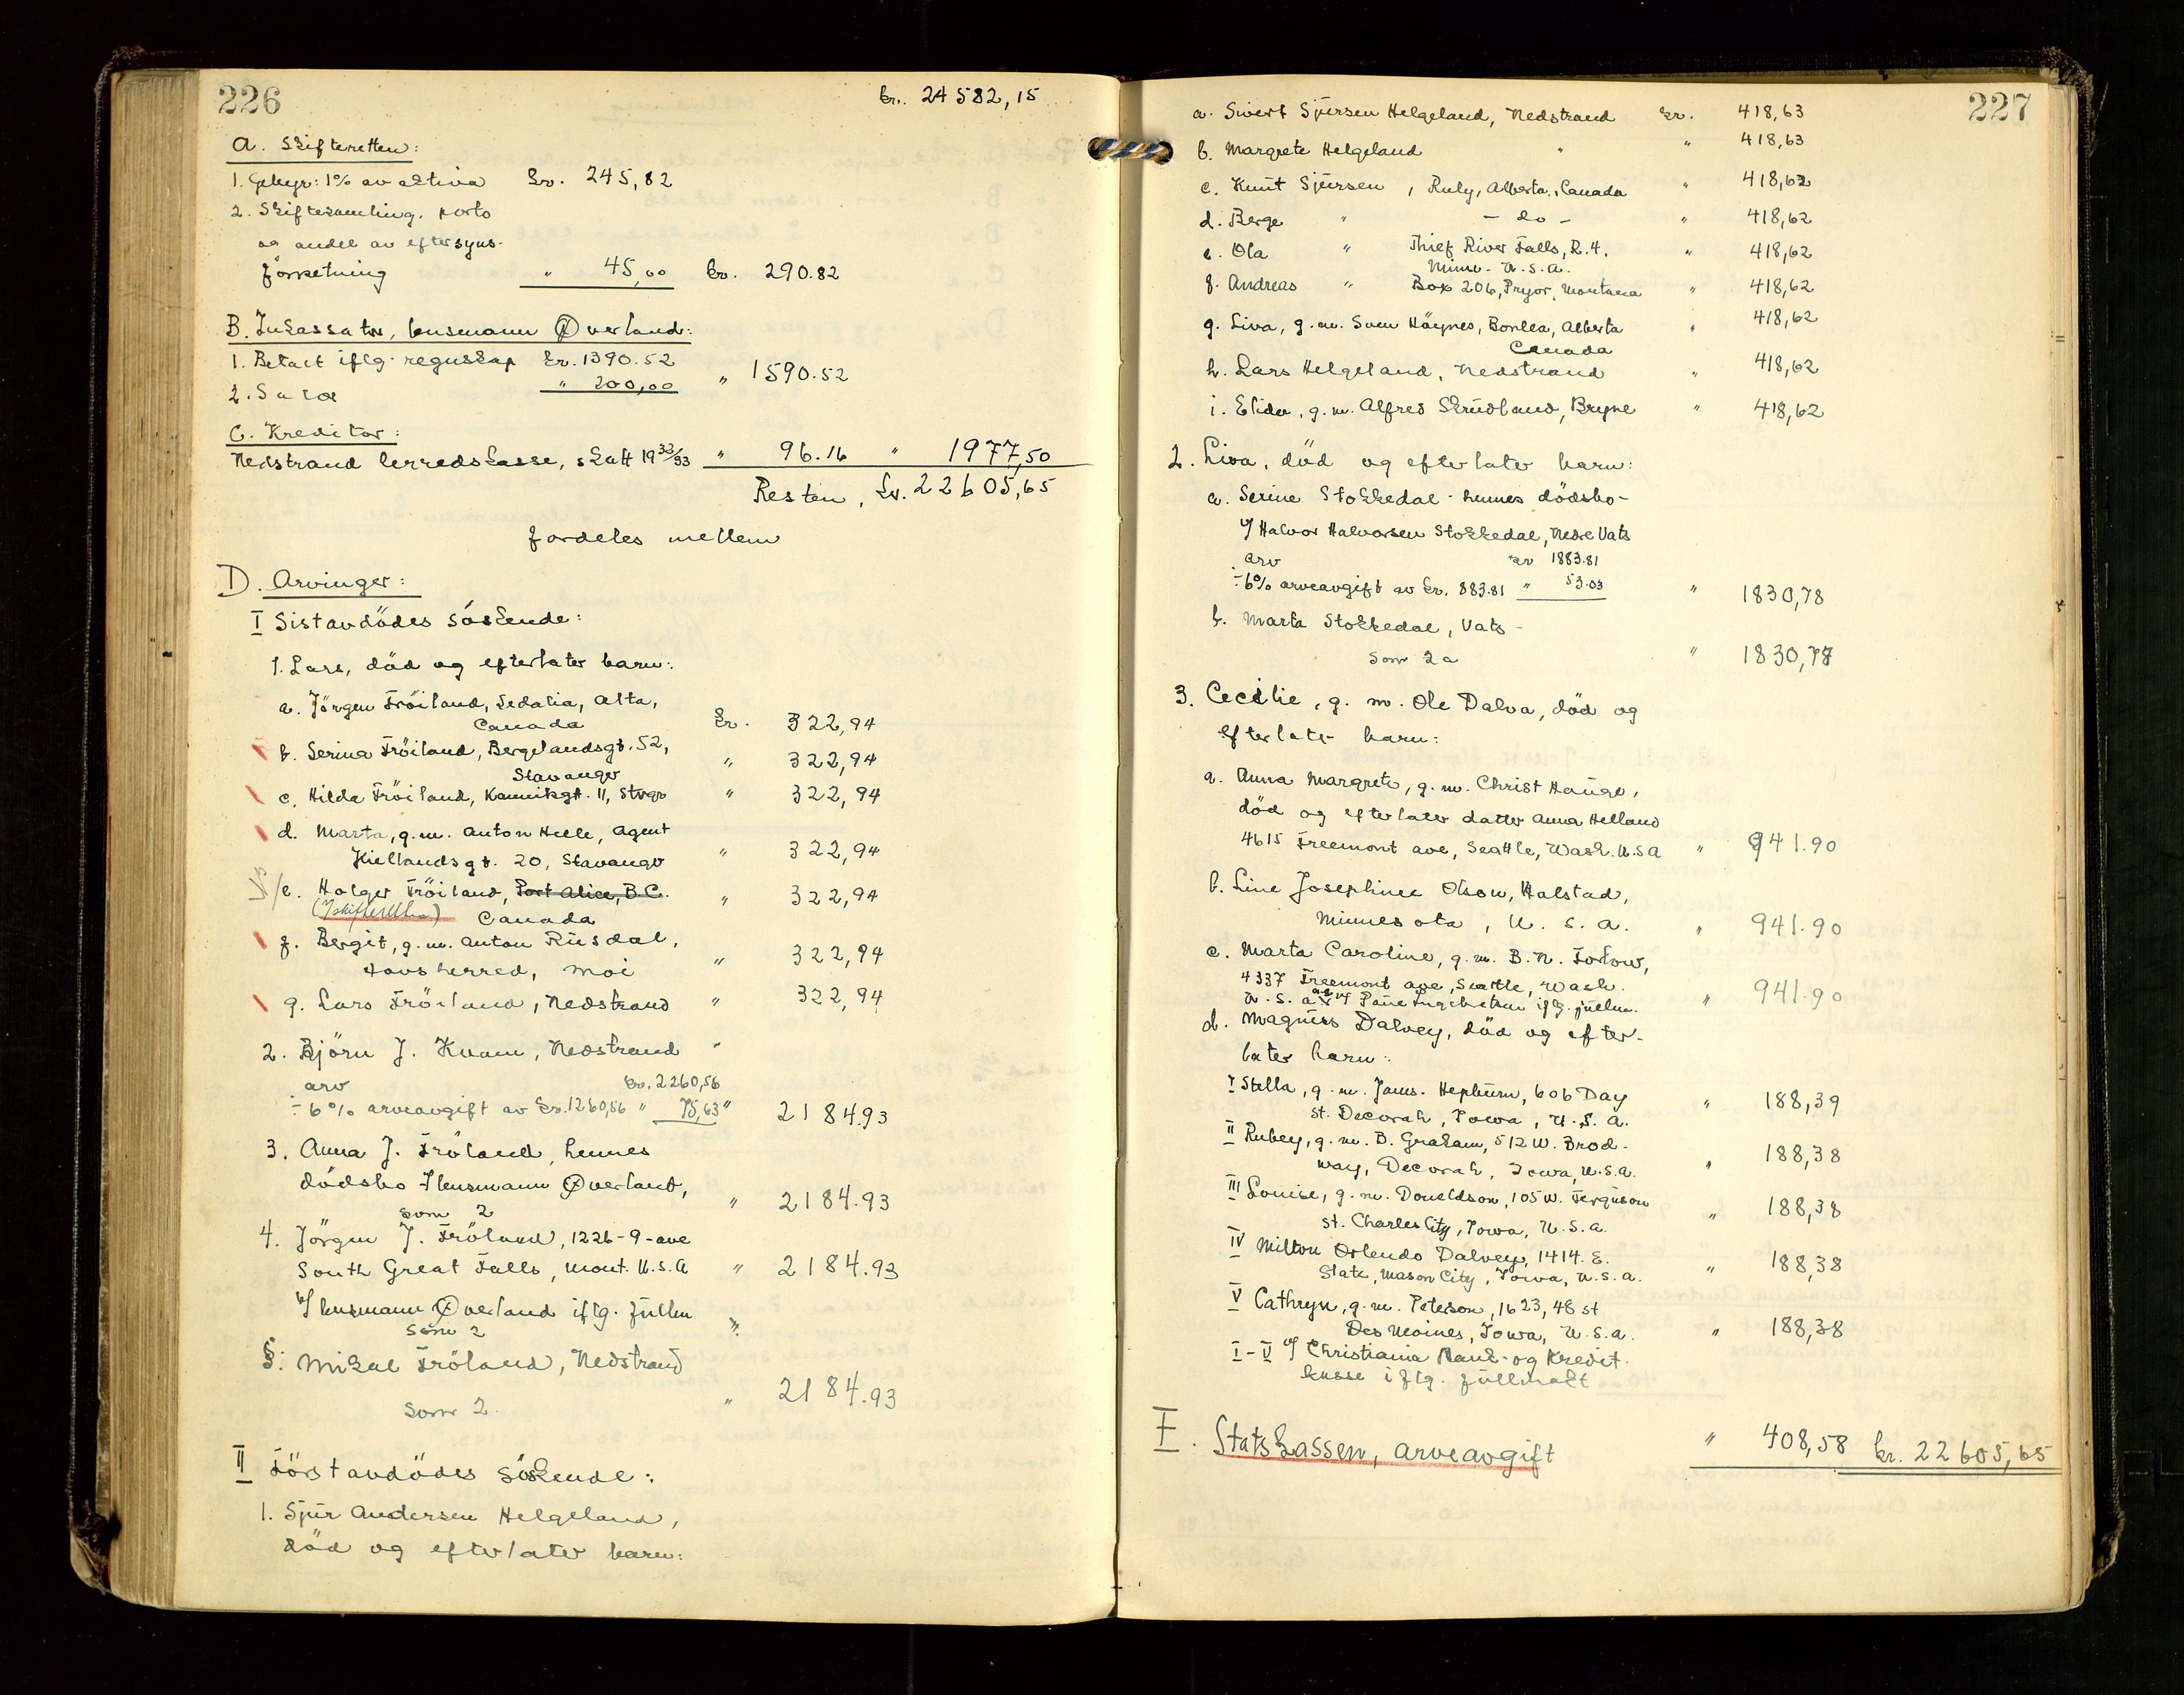 226
kr. 24582,15
A. Skifteretten:
1. Gebyr: 1% av aktiva kr. 245,82
2. Skiftesamling, porto
og andel av eftersyns-
forretning " 45,00 kr. 290.82
B. Inkassator, lensmann Øverland:
1. Betalt iflg. regnskap kr. 1390.52
2. Salær " 200,00 " 1590.52
C. Kreditor:
Nedstrand herredskasse, skatt 1932/33 " 96.16 " 1977,50
Resten, kr. 22605,65
fordeles mellem
D. Arvinger:
I Sistavdödes söskende:
1. Lars, död og efterlater barn:
a. Jörgen Fröiland, Sedalia, Alta,
Canada kr. 322,94
b. Serina Fröiland, Bergelandsgt. 52,
Stavanger " 322,94
c. Hilda Fröiland, Kannikgt. 11, Stvgr " 322,94
d. Marta, g.m. Anton Helle, Agent
Kiellandsgt. 20, Stavanger " 322,94
e. Holger Fröiland, Port Alice, B.C.
Canada " 322,94
f. Bergit, g.m. Anton Rusdal,
Hovsherred, Moi " 322,94
g. Lars Fröiland, Nedstrand " 322,94
2. Björn J. Kvam, Nedstrand
arv kr. 2260,56
÷ 6% arveavgift av kr. 1260,56 " 75,63 " 2184.93
3. Anna J. Fröland, hennes
dödsbo v/ lensmann Øverland,
som 2 " 2184.93
4. Jörgen J. Fröland, 1226-9-ave
South Great Falls, Mont. U.S.A " 2184.93
v/ lensmann Øverland iflg. fullm
som 2 "
5. Mikal Fröland, Nedstrand
som 2. " 2184.93
II Förstavdödes söskende:
1. Sjur Andersen Helgeland,
död og efterlater barn:
227
a. Sivert Sjursen Helgeland, Nedstrand kr. 418,63
b. Margrete Helgeland " " 418,63
c. Knut Sjursen, Ruly, Alberta, Canada " 418,62
d. Berge " - do - " 418,62
e. Ola " Thief River Falls, R.4.
Minn. U.S.A. " 418,62
f. Andreas " Box 206, Pryor, Montana " 418,62
g. Liva, g.m. Sven Höynes, Bonlea, Alberta
Canada " 418,62
h. Lars Helgeland, Nedstrand " 418,62
i. Elida, g.m. Alfred Skrudland, Bryne " 418,62
2. Liva, död og efterlater barn:
a. Serine Stokkedal - hennes dödsbo -
v/ Halvor Halvorsen Stokkedal, Nedre Vats
arv kr 1883.81
÷ 6% arveavgift av kr. 883.81 " 53.03 " 1830,78
b. Marta Stokkedal, Vats -
som 2a " 1830,78
3. Cecilie, g. m. Ole Dalva, död og
efterlater barn:
a. Anna Margrete, g.m. Christ Hauge,
död og efterlater datter Anna Helland
4615 Freemont ave, Seattle, Wash. U.S.A " 941.90
b. Line Josephine Olson, Halstad,
Minnesota, U.S.A. " 941.90
c. Marta Caroline, g.m. B.N. Forlow,
4337 Freemont ave, Seattle, Wash.
U.S.A. v/ iflg. fullm. " 941.90
d. Magnus Dalvey, död og efter-
later barn:
I Stella, g.m. Jams. Hepburn, 606 Day
St. Decorah, Iowa, U.S.A. " 188,39
II Rubey, g.m. B. Graham, 512 W. Brod-
way, Decorah, Iowa, U.S.A. " 188,38
III Louise, g.m. Doneldson, 105 W. Ferguson
St. Charles City, Iowa, U.S.A. " 188,38
IV Milton Orlendo Dalvey, 1414. E.
State, Mason City, Iowa, U.S.A. " 188,38
V Cathryn, g.m. Peterson, 1623, 48 st
Des Moines, Iowa, U.S.A. " 188,38
I-V v/ Christiania Bank- og Kredit-
kasse iflg. fullmakt
E. Statskassen, arveavgift " 408,58 kr. 22605,65